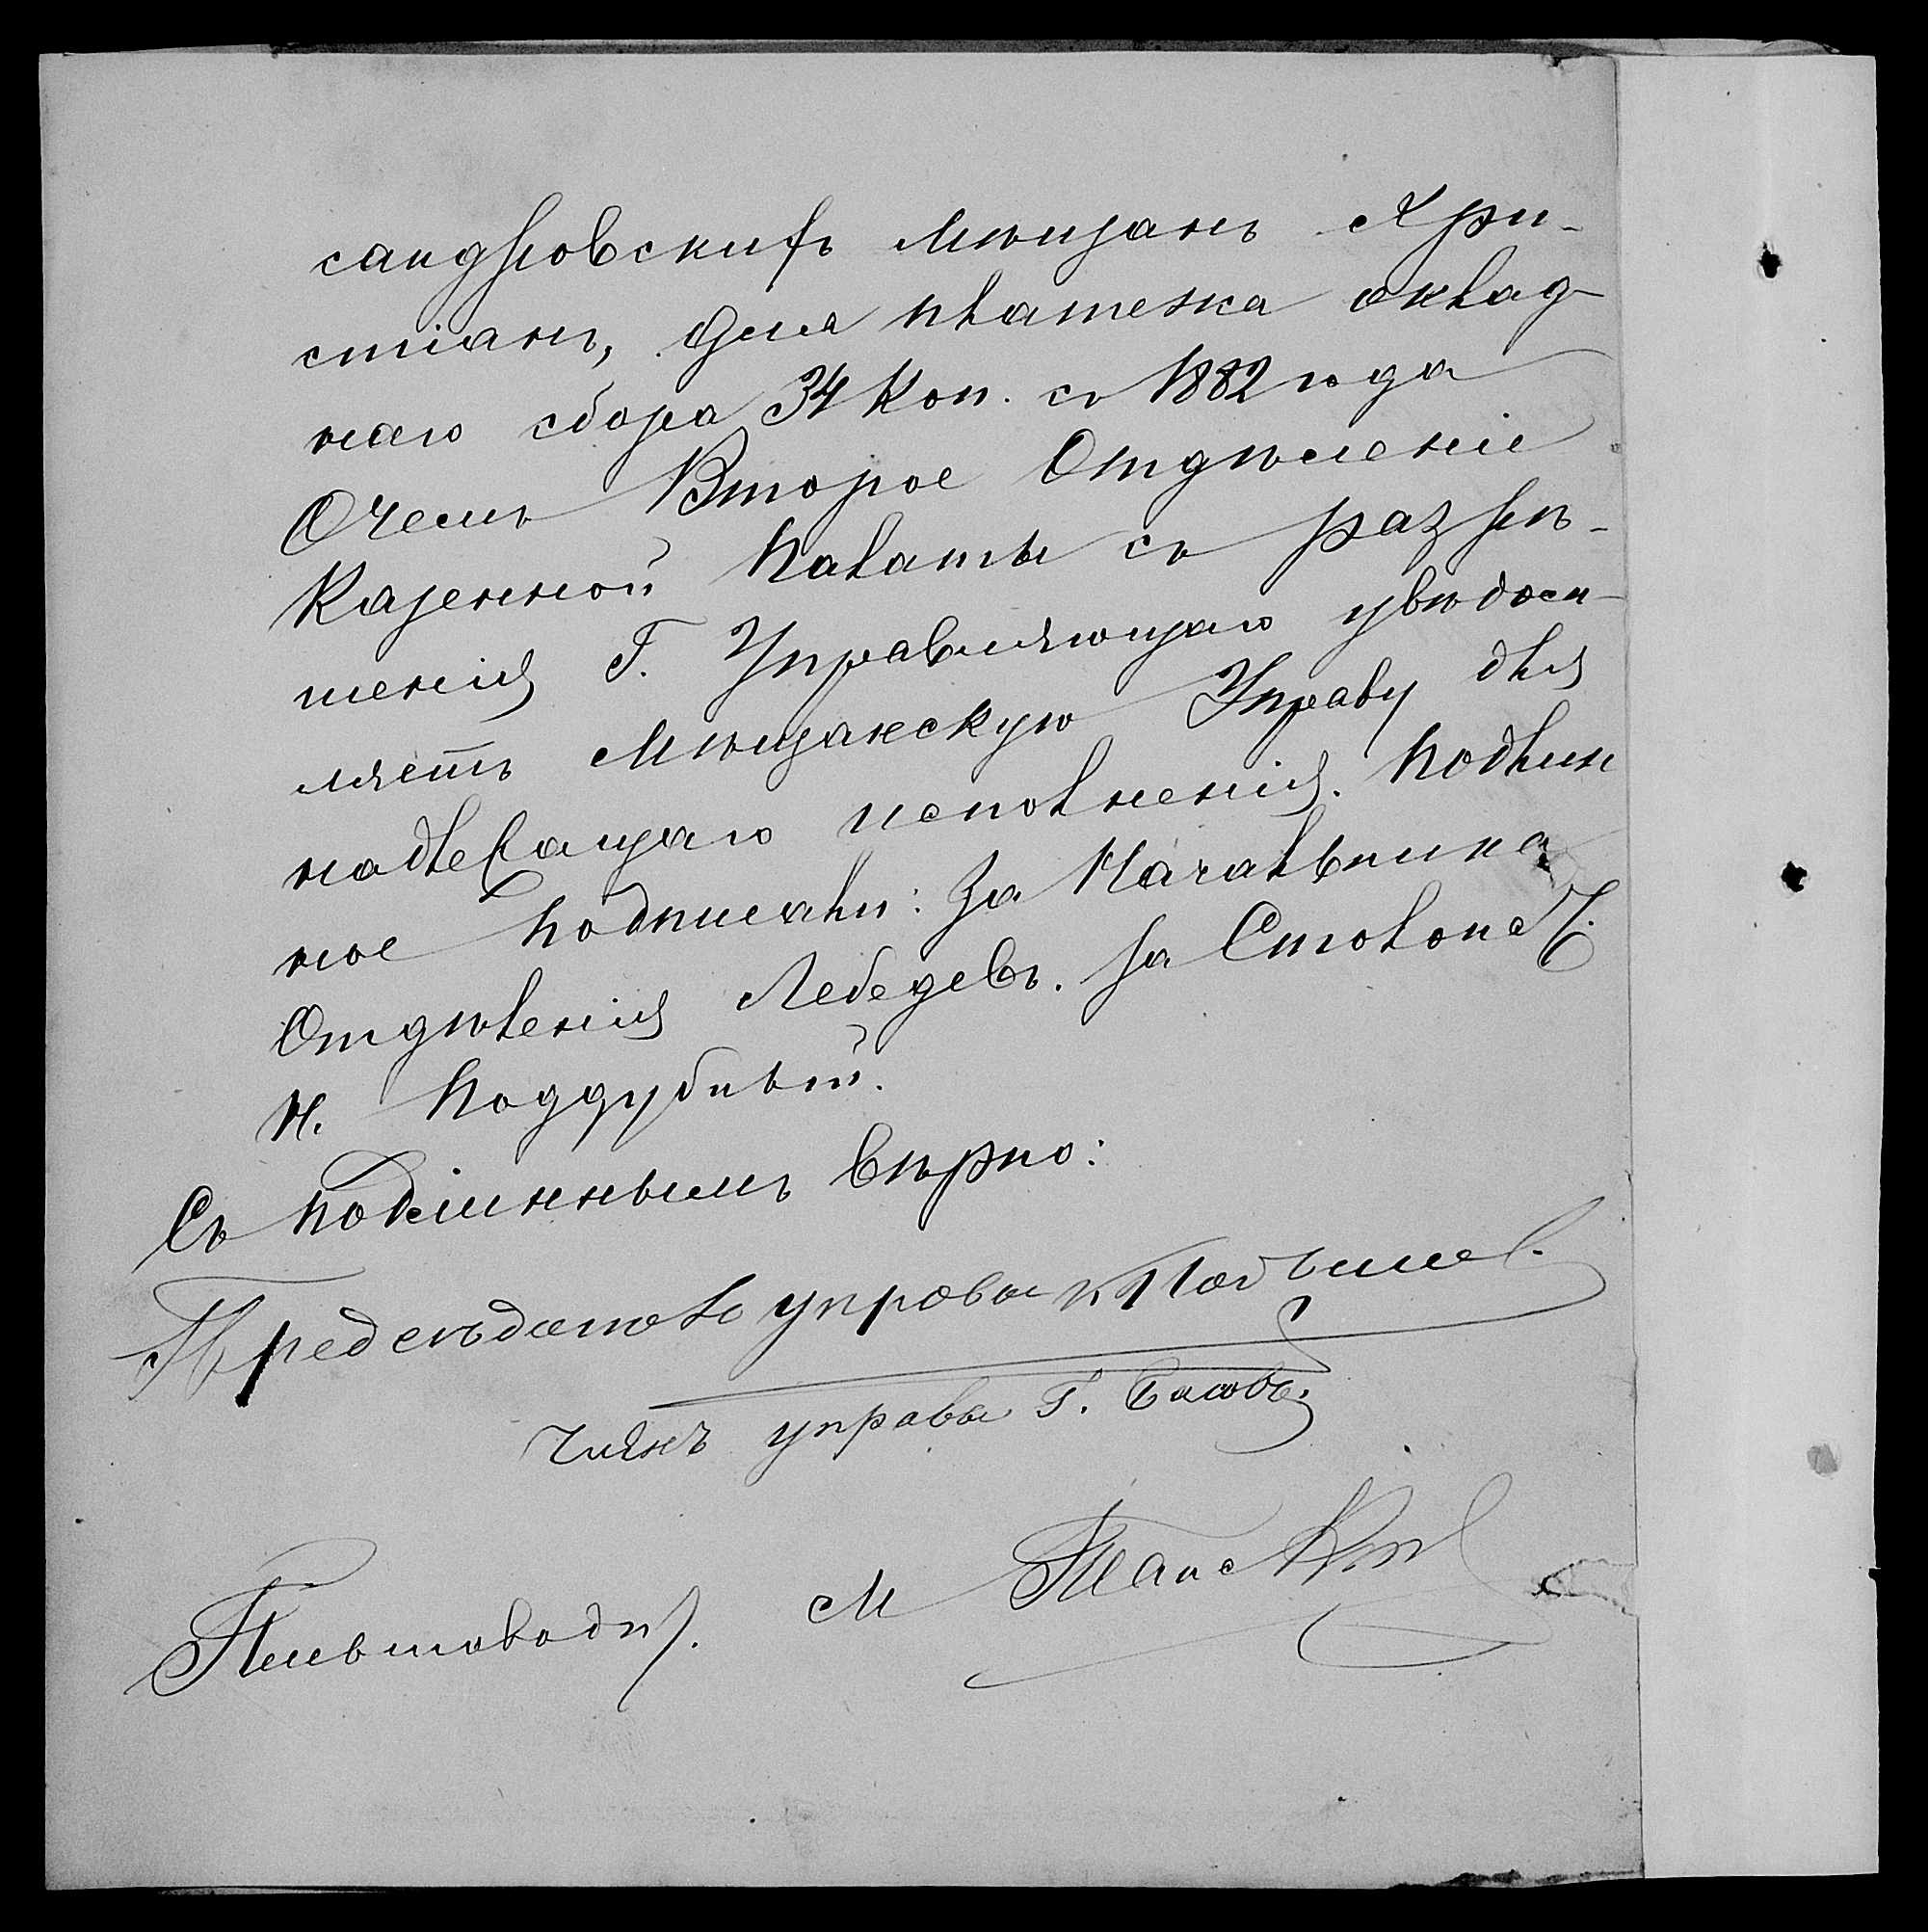 сандровскихъ Мѣщанъ Хри-
стіанъ, для платежа оклад-
наго сбора 34 коп. съ 1882 года
О чемъ Второе Отдѣленіе
Казенной Палаты съ разрѣ-
шенія Г. Управляющаго увѣдом-
ляетъ Мѣщанскую Управу для
надлежащаго исполненія. Подлин
ное подписали: За Начальника
Отдѣленія Лебедевъ. За Столонач.
Н. Поддубный.
Съ подлиннымъ вѣрно:
Предсѣдатель управы
Членъ управы Г.
Письмоводит. М